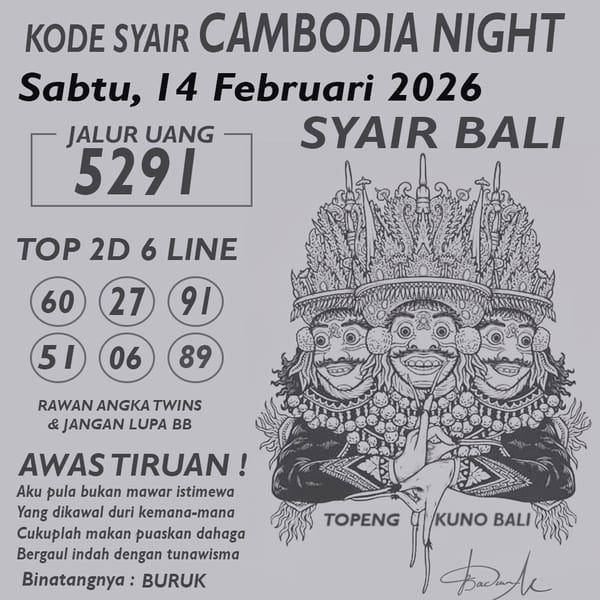 KODE SYAIR CAMBODIA NIGHT
Sabtu, 14 Februari 2026
JALUR UANG
5291
SYAIR BALI
TOP 2D 6 LINE
60 27 91
51 06 89
RAWAN ANGKA TWINS
& JANGAN LUPA BB
AWAS TIRUAN !
Aku pula bukan mawar istimewa
Yang dikawal duri kemana-mana
Cukuplah makan puaskan dahaga
Bergaul indah dengan tunawisma
Binatangnya : BURUK
TOPENG KUNO BALI